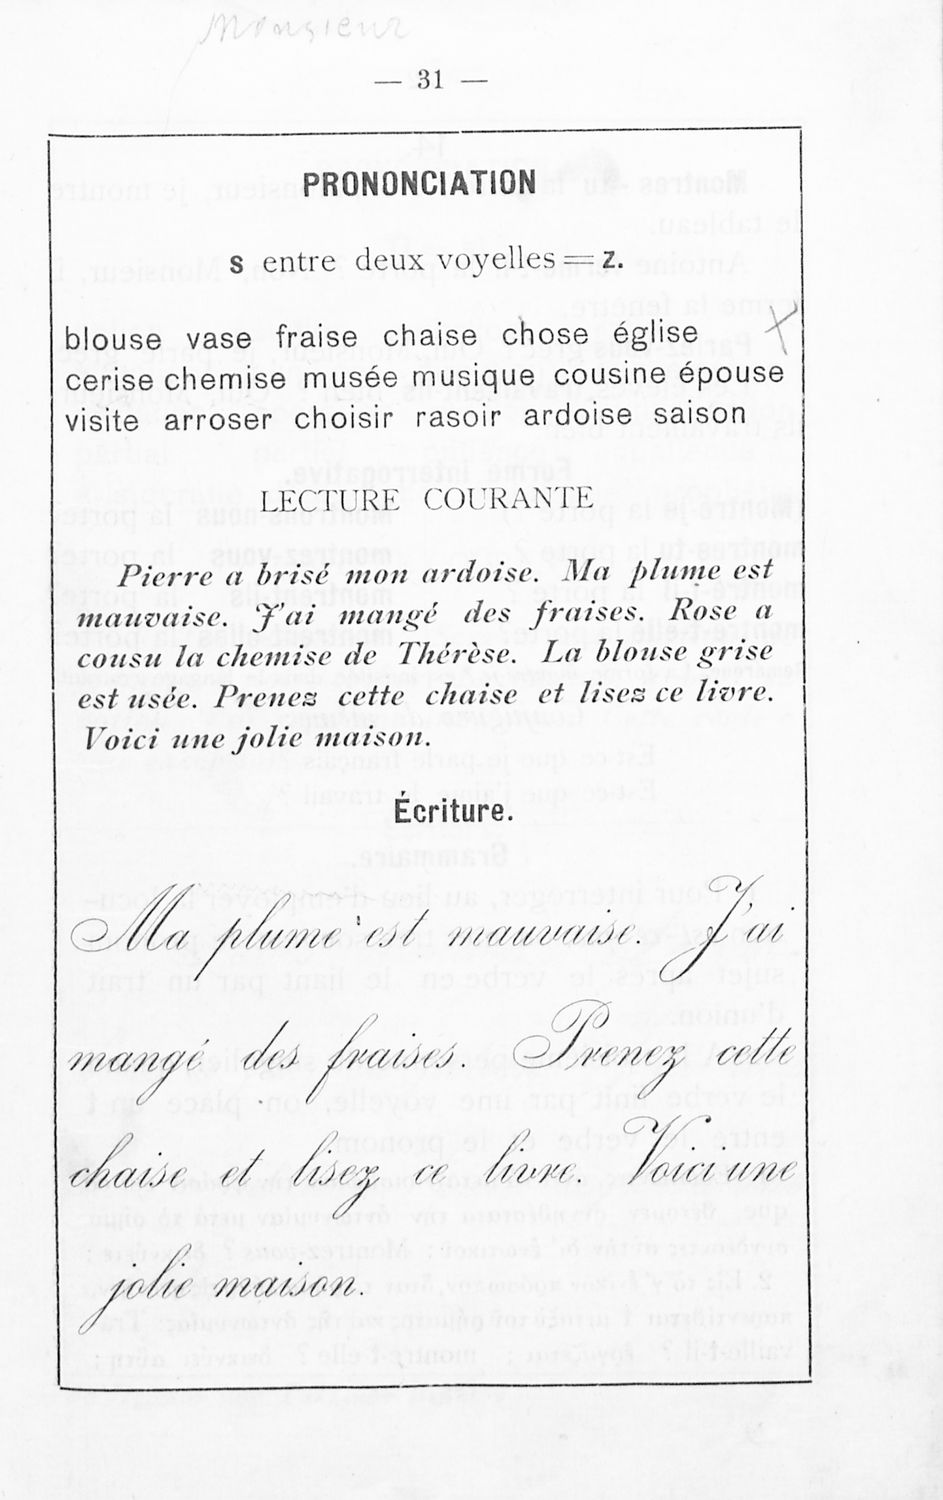 Monsieur
— 31 —
PRONONCIATION
s entre deux voyelles = z.
blouse vase fraise chaise chose église
cerise chemise musée musique cousine épouse
visite arroser choisir rasoir ardoise saison
LECTURE COURANTE
Pierre a brisé mon ardoise. Ma plume est
mauvaise. J'ai mangé des fraises. Rose a
cousu la chemise de Thérèse. La blouse grise
est usée. Prenez cette chaise et lisez ce livre.
Voici une jolie maison.
Écriture.
Ma plume est mauvaise. J'ai
mangé des fraises. Prenez cette
chaise et lisez ce livre. Voici une
jolie maison.